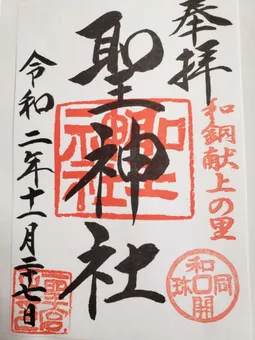 奉拝
和銅献上の里
聖神社
和同開珎
令和二年十一月二十七日